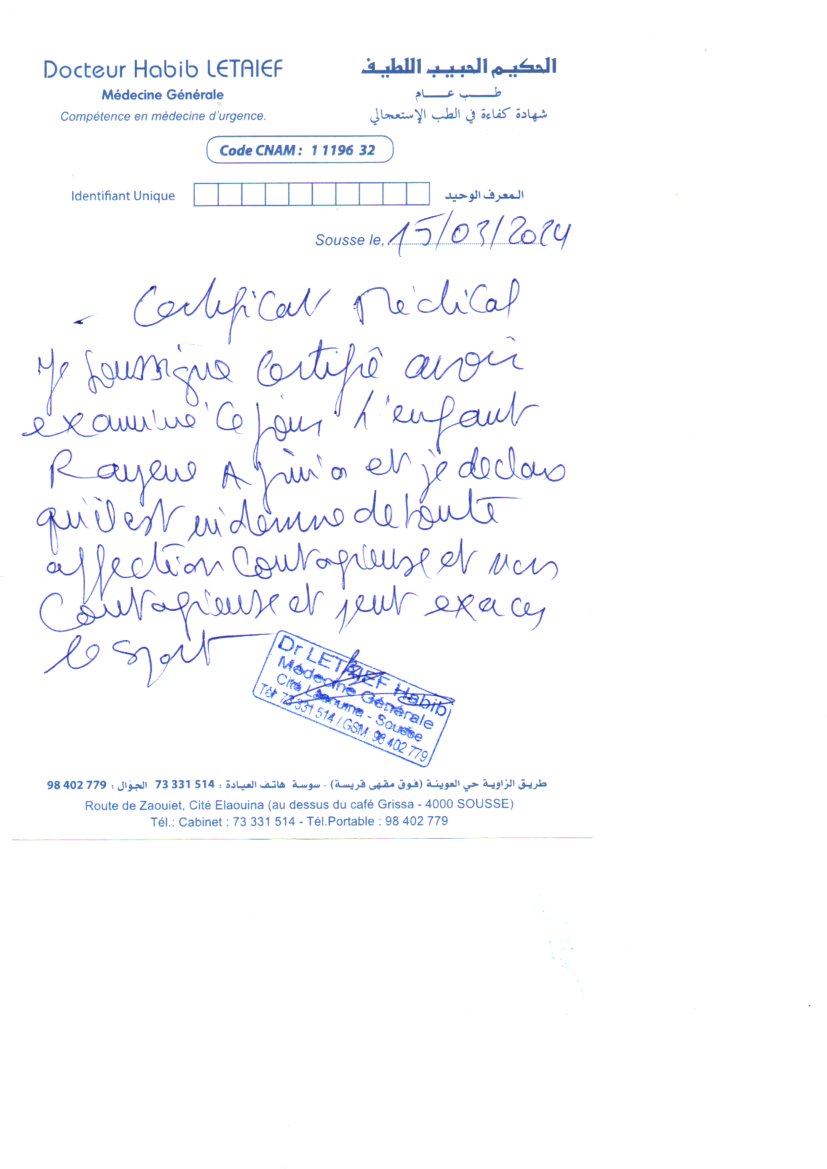 Docteur Habib LETAIEF
Médecine Générale
Compétence en médecine d'urgence.
الحكيم الحبيب اللطيف
طب عام
شهادة كفاءة في الطب الإستعجالي
Code CNAM : 1 1196 32
Identifiant Unique المعرف الوحيد
Sousse le, 15/03/2024
Certificat Médical
Je soussigné certifié avoir
examiné ce jour l'enfant
Rayene et je declare
qu'il est indemne de toute
affection contagieuse et non
contagieuse et peut exercer
le sport
Dr LETAIEF Habib
Médecine Générale
Cité Laouina - Sousse
Tél: 73 331 514 / GSM: 98 402 779
طريق الزاوية حي العوينة (فوق مقهى قريسة) - سوسة هاتف العيادة : 514 331 73 الجوال : 779 402 98
Route de Zaouiet, Cité Elaouina (au dessus du café Grissa - 4000 SOUSSE)
Tél.: Cabinet : 73 331 514 - Tél.Portable : 98 402 779